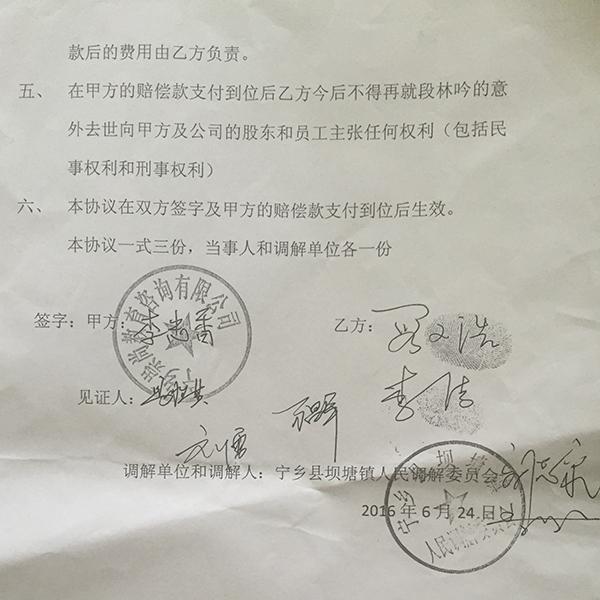 款后的费用由乙方负责。
五、 在甲方的赔偿款支付到位后乙方今后不得再就段林吟的意
外去世向甲方及公司的股东和员工主张任何权利（包括民
事权利和刑事权利）
六、 本协议在双方签字及甲方的赔偿款支付到位后生效。
本协议一式三份，当事人和调解单位各一份
签字：甲方： 乙方：
尚教育咨询有限公司
见证人：
调解单位和调解人：宁乡县坝塘镇人民调解委员会
2016 年 6 月 24 日
人民调解委员会